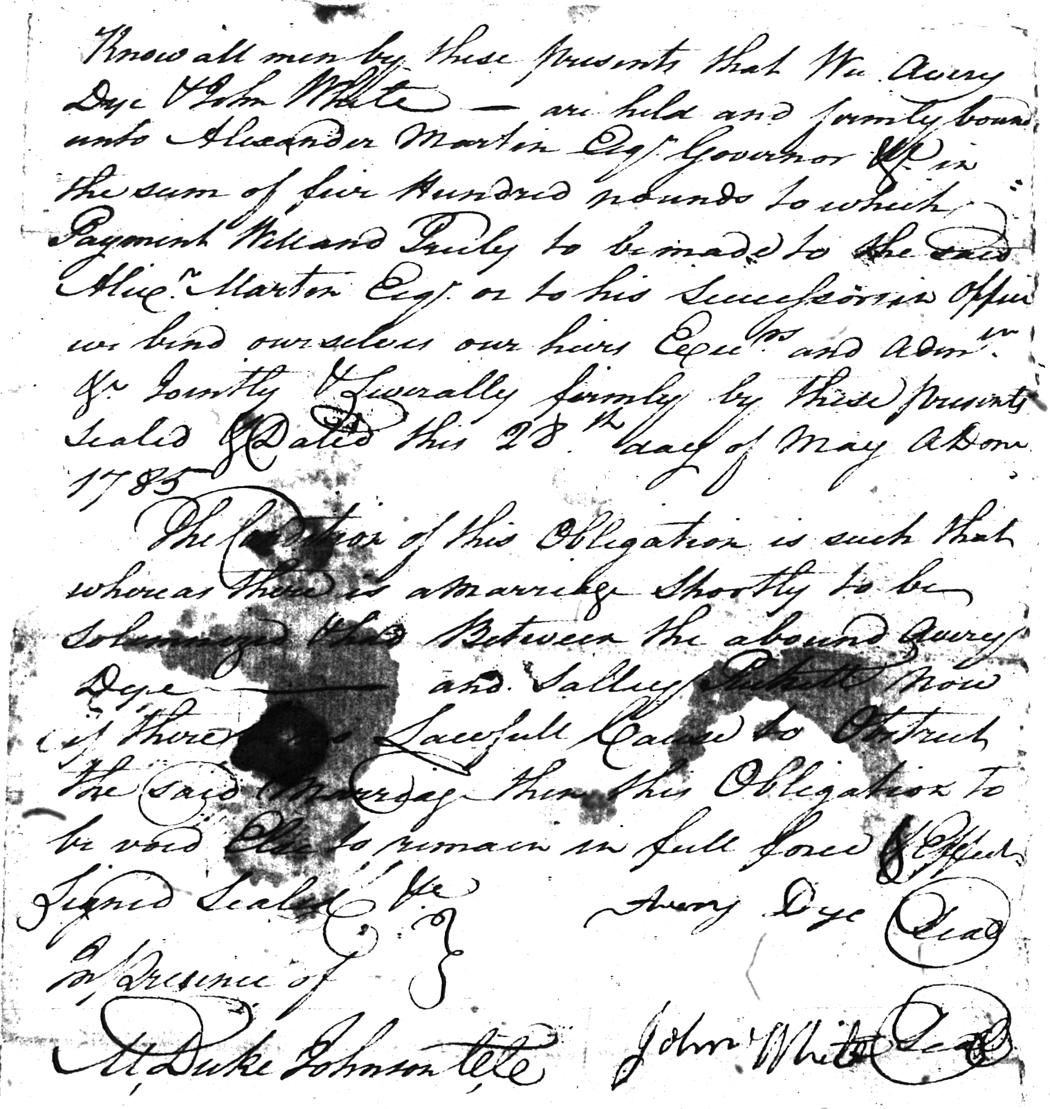 Know all men by these presents that We Avery
Dye & John White — are held and firmly bound
unto Alexander Martin Esqr Governor &c. in
the sum of five Hundred pounds to which
Payment Well and Truly to be made to the said
Alexr. Martin Esqr. or to his Successors in Office
we bind ourselves our heirs Execurs and Admrs.
&c Jointly & Severally firmly by these presents
Sealed & Dated this 28th day of May ADom
1785
The Condition of this Obligation is such that
whereas there is a Marriage Shortly to be
solemnized & had Between the abound Avery
Dye — and Salley Now
if there is Lawfull Cause to Obstruct
the said Marriag then this Obligation to
be void Else to remain in full force & Effect
Signed Sealed &c
Avery Dye Seal
In presence of
John White Seal
M, Duke Johnson